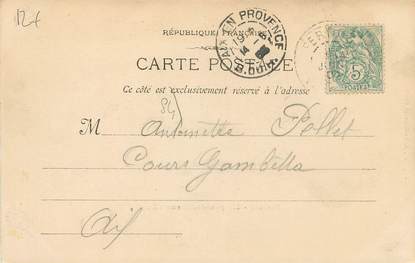 12f
RÉPUBLIQUE FRANÇAISE
AIX EN PROVENCE
B. DU R.
CARTE POSTALE
5
POSTES
Ce côté est exclusivement réservé à l'adresse
84
M Antoinette Pellet
Cours Gambetta
Aix